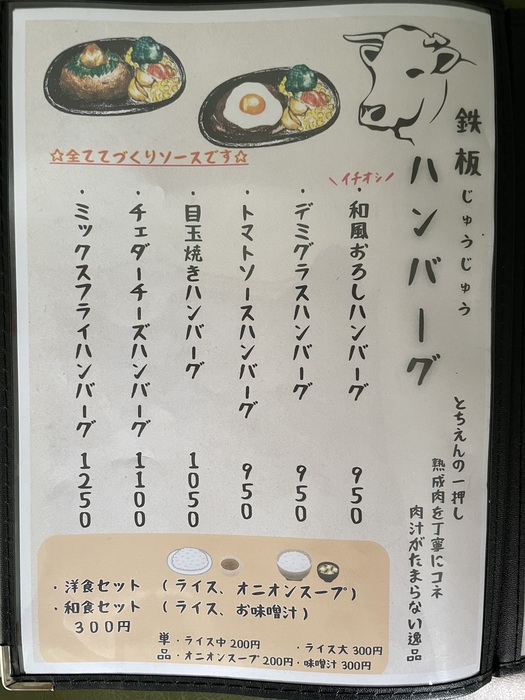 鉄板じゅうじゅう
ハンバーグ
とちえんの一押し
熟成肉を丁寧にコネ
肉汁がたまらない逸品
☆全ててづくりソースです☆
\イチオシ/
・和風おろしハンバーグ 950
・デミグラスハンバーグ 950
・トマトソースハンバーグ 950
・目玉焼きハンバーグ 1050
・チェダーチーズハンバーグ 1100
・ミックスフライハンバーグ 1250
・洋食セット (ライス、オニオンスープ)
・和食セット (ライス、お味噌汁)
300円
単品
・ライス中 200円 ・ライス大 300円
・オニオンスープ 200円 ・味噌汁 300円